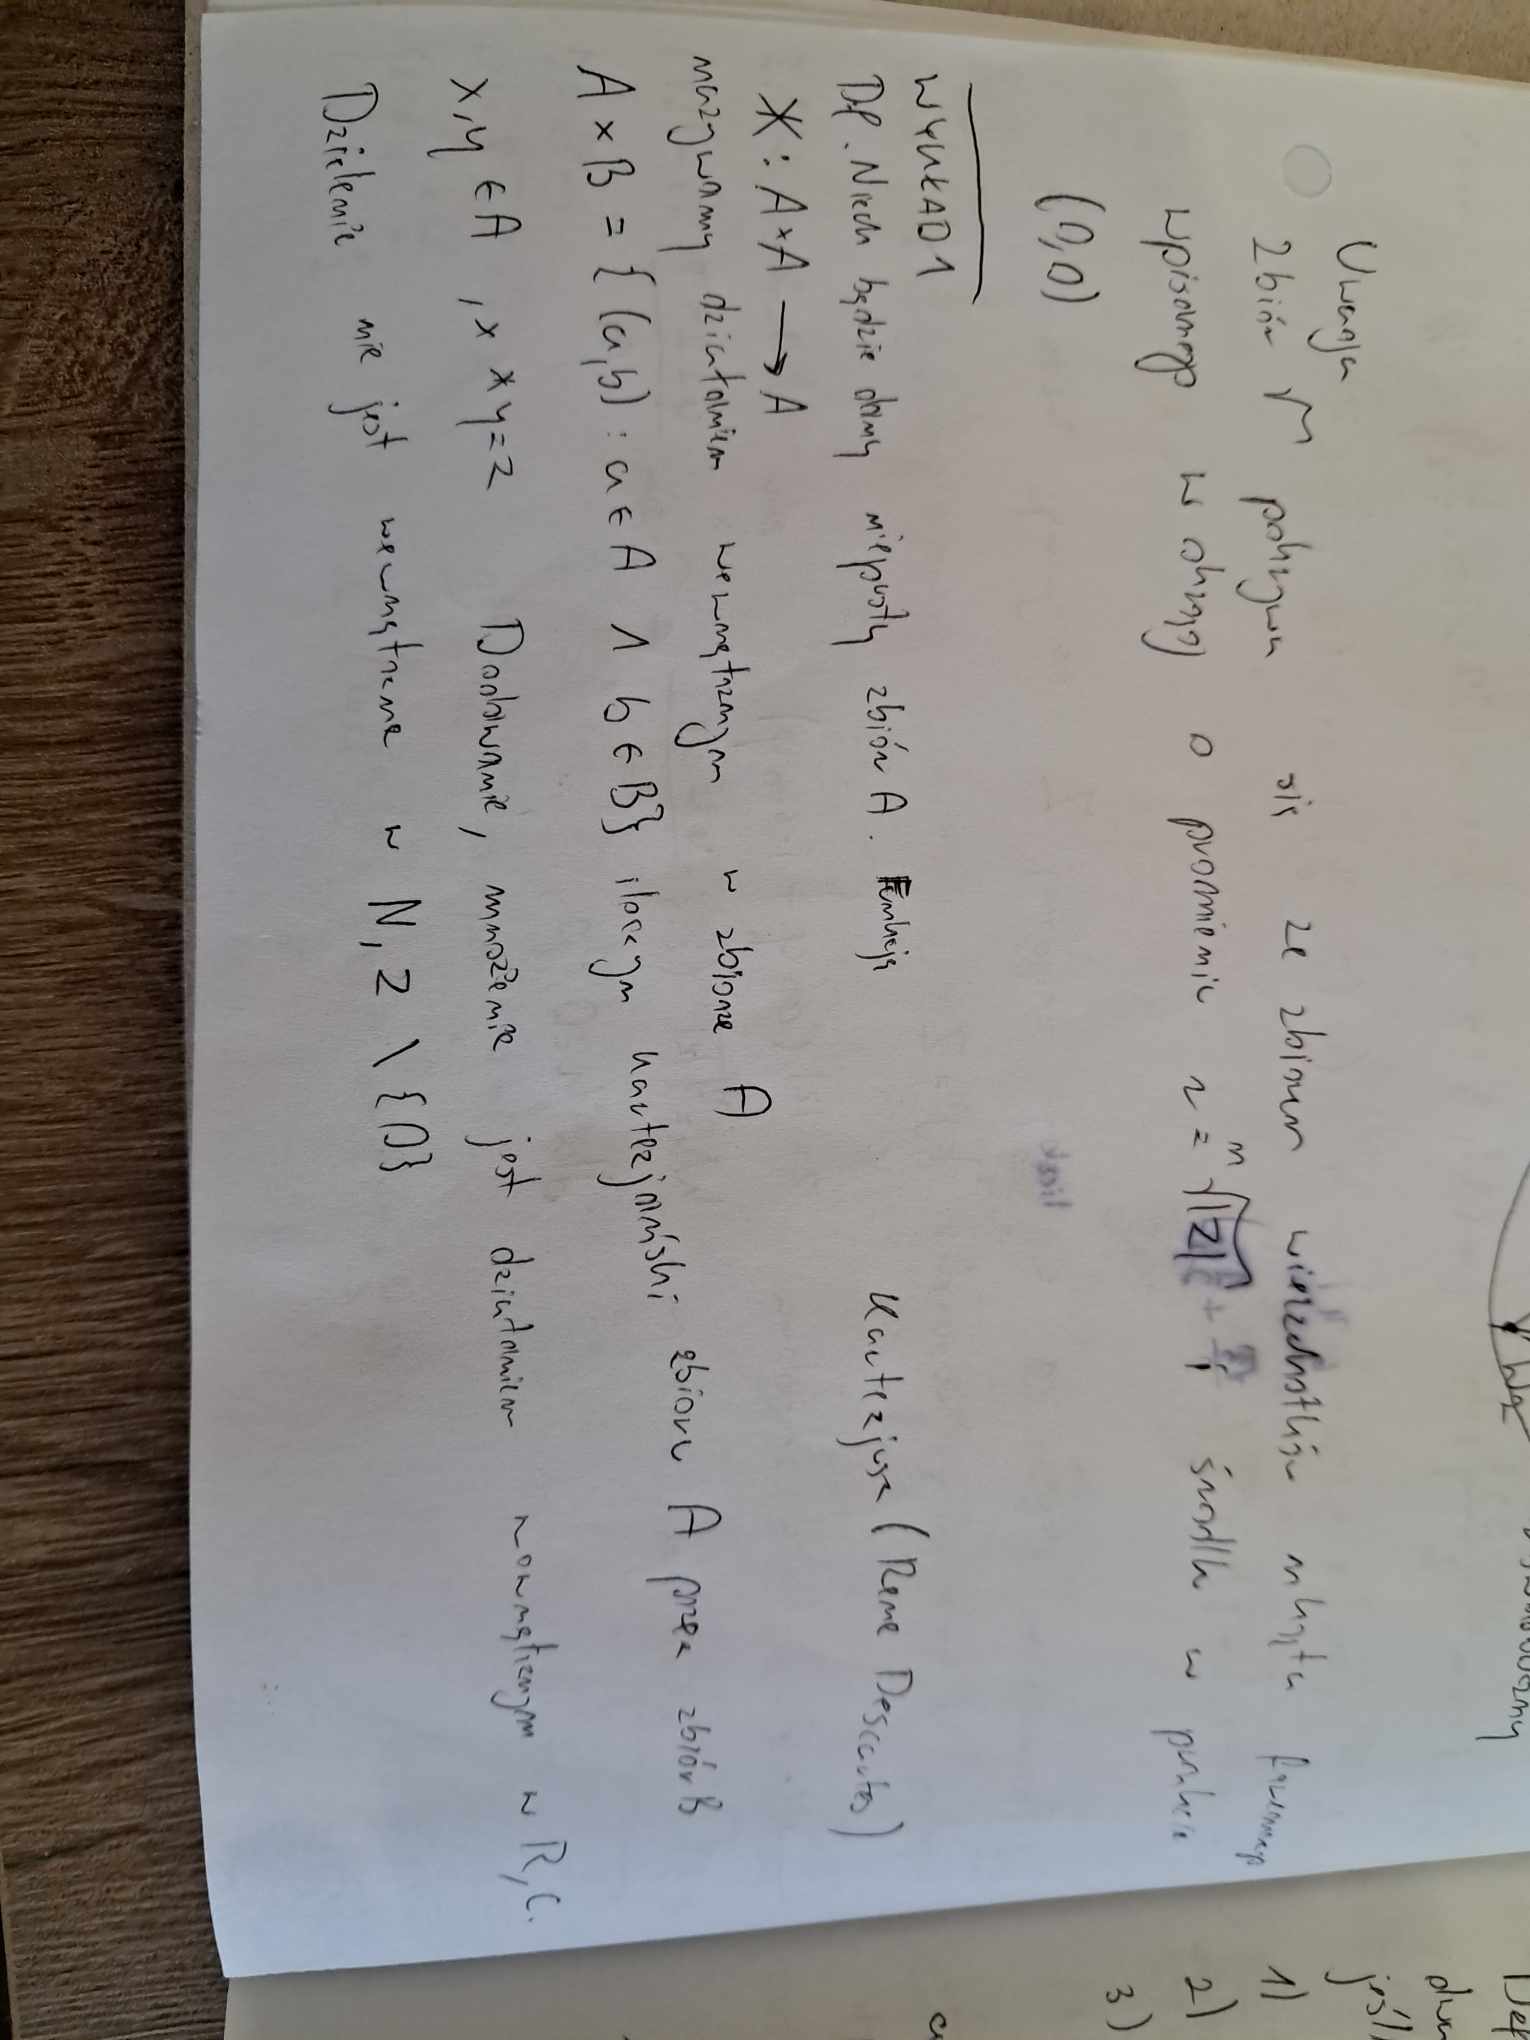 Uwaga
Zbiór pokrywa się ze zbiorem wierzchołków n-kąta foremnego
wpisanego w okrąg o promieniu r = ⁿ√|z| i środku w punkcie
(0,0)
WYKŁAD 1
Df. Niech będzie dany niepusty zbiór A. Funkcję Kartezjusz (Rene Descartes)
* : A × A → A
nazywamy działaniem wewnętrznym w zbiorze A
A × B = { (a,b) : a ∈ A ∧ b ∈ B} iloczyn kartezjański zbioru A przez zbiór B
x,y ∈ A , x * y = z Dodawanie, mnożenie jest działaniem wewnętrznym w R, C.
Dzielenie nie jest wewnętrzne w N, Z \ {0}
1)
2)
3)